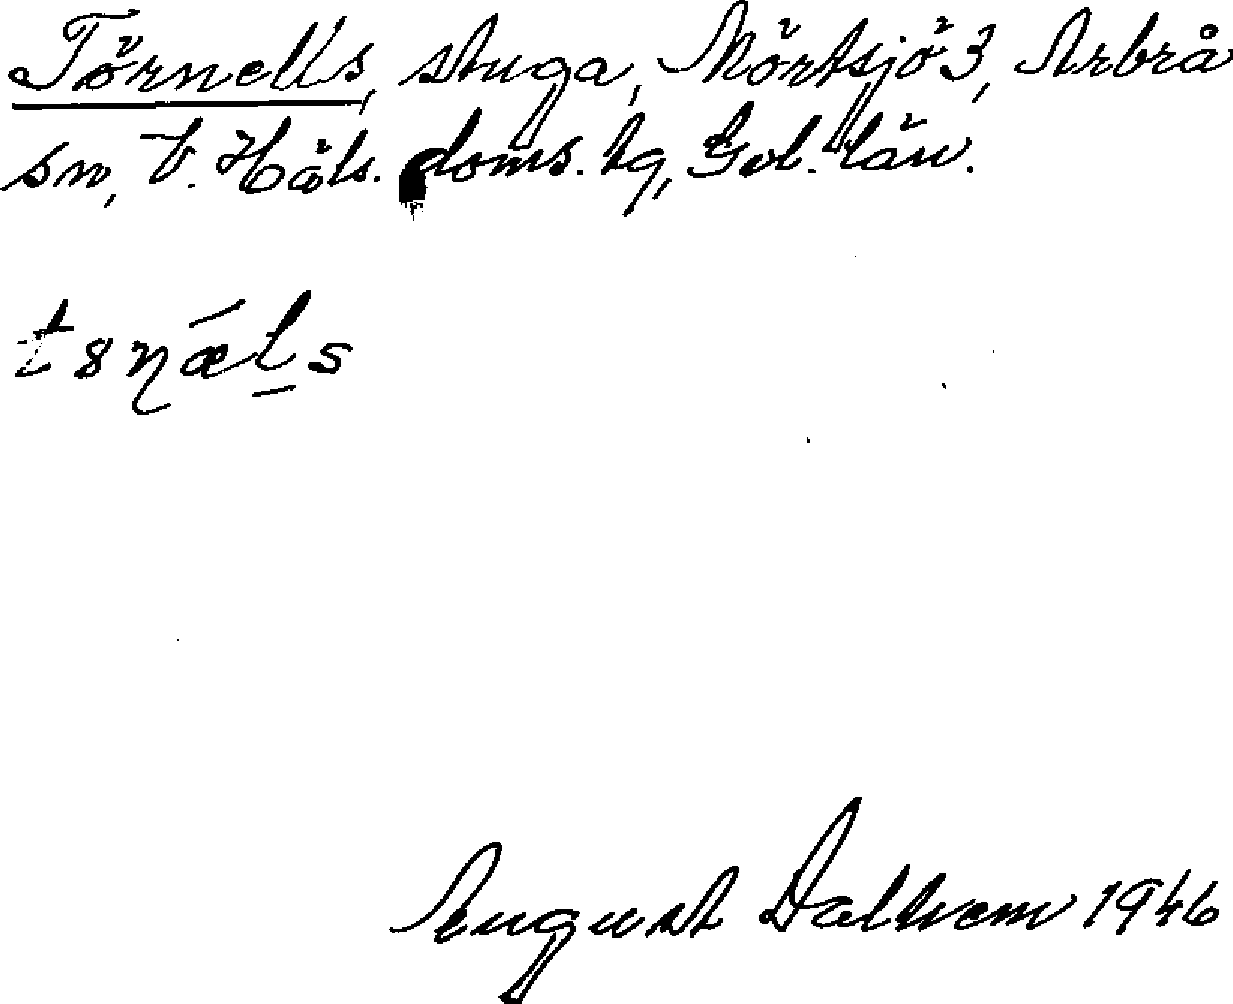 Törnells, stuga, Mörtsjö 3, Arbrå
sn, V. Häls. doms. tg, Gvl. län.
August Dalhem 1946